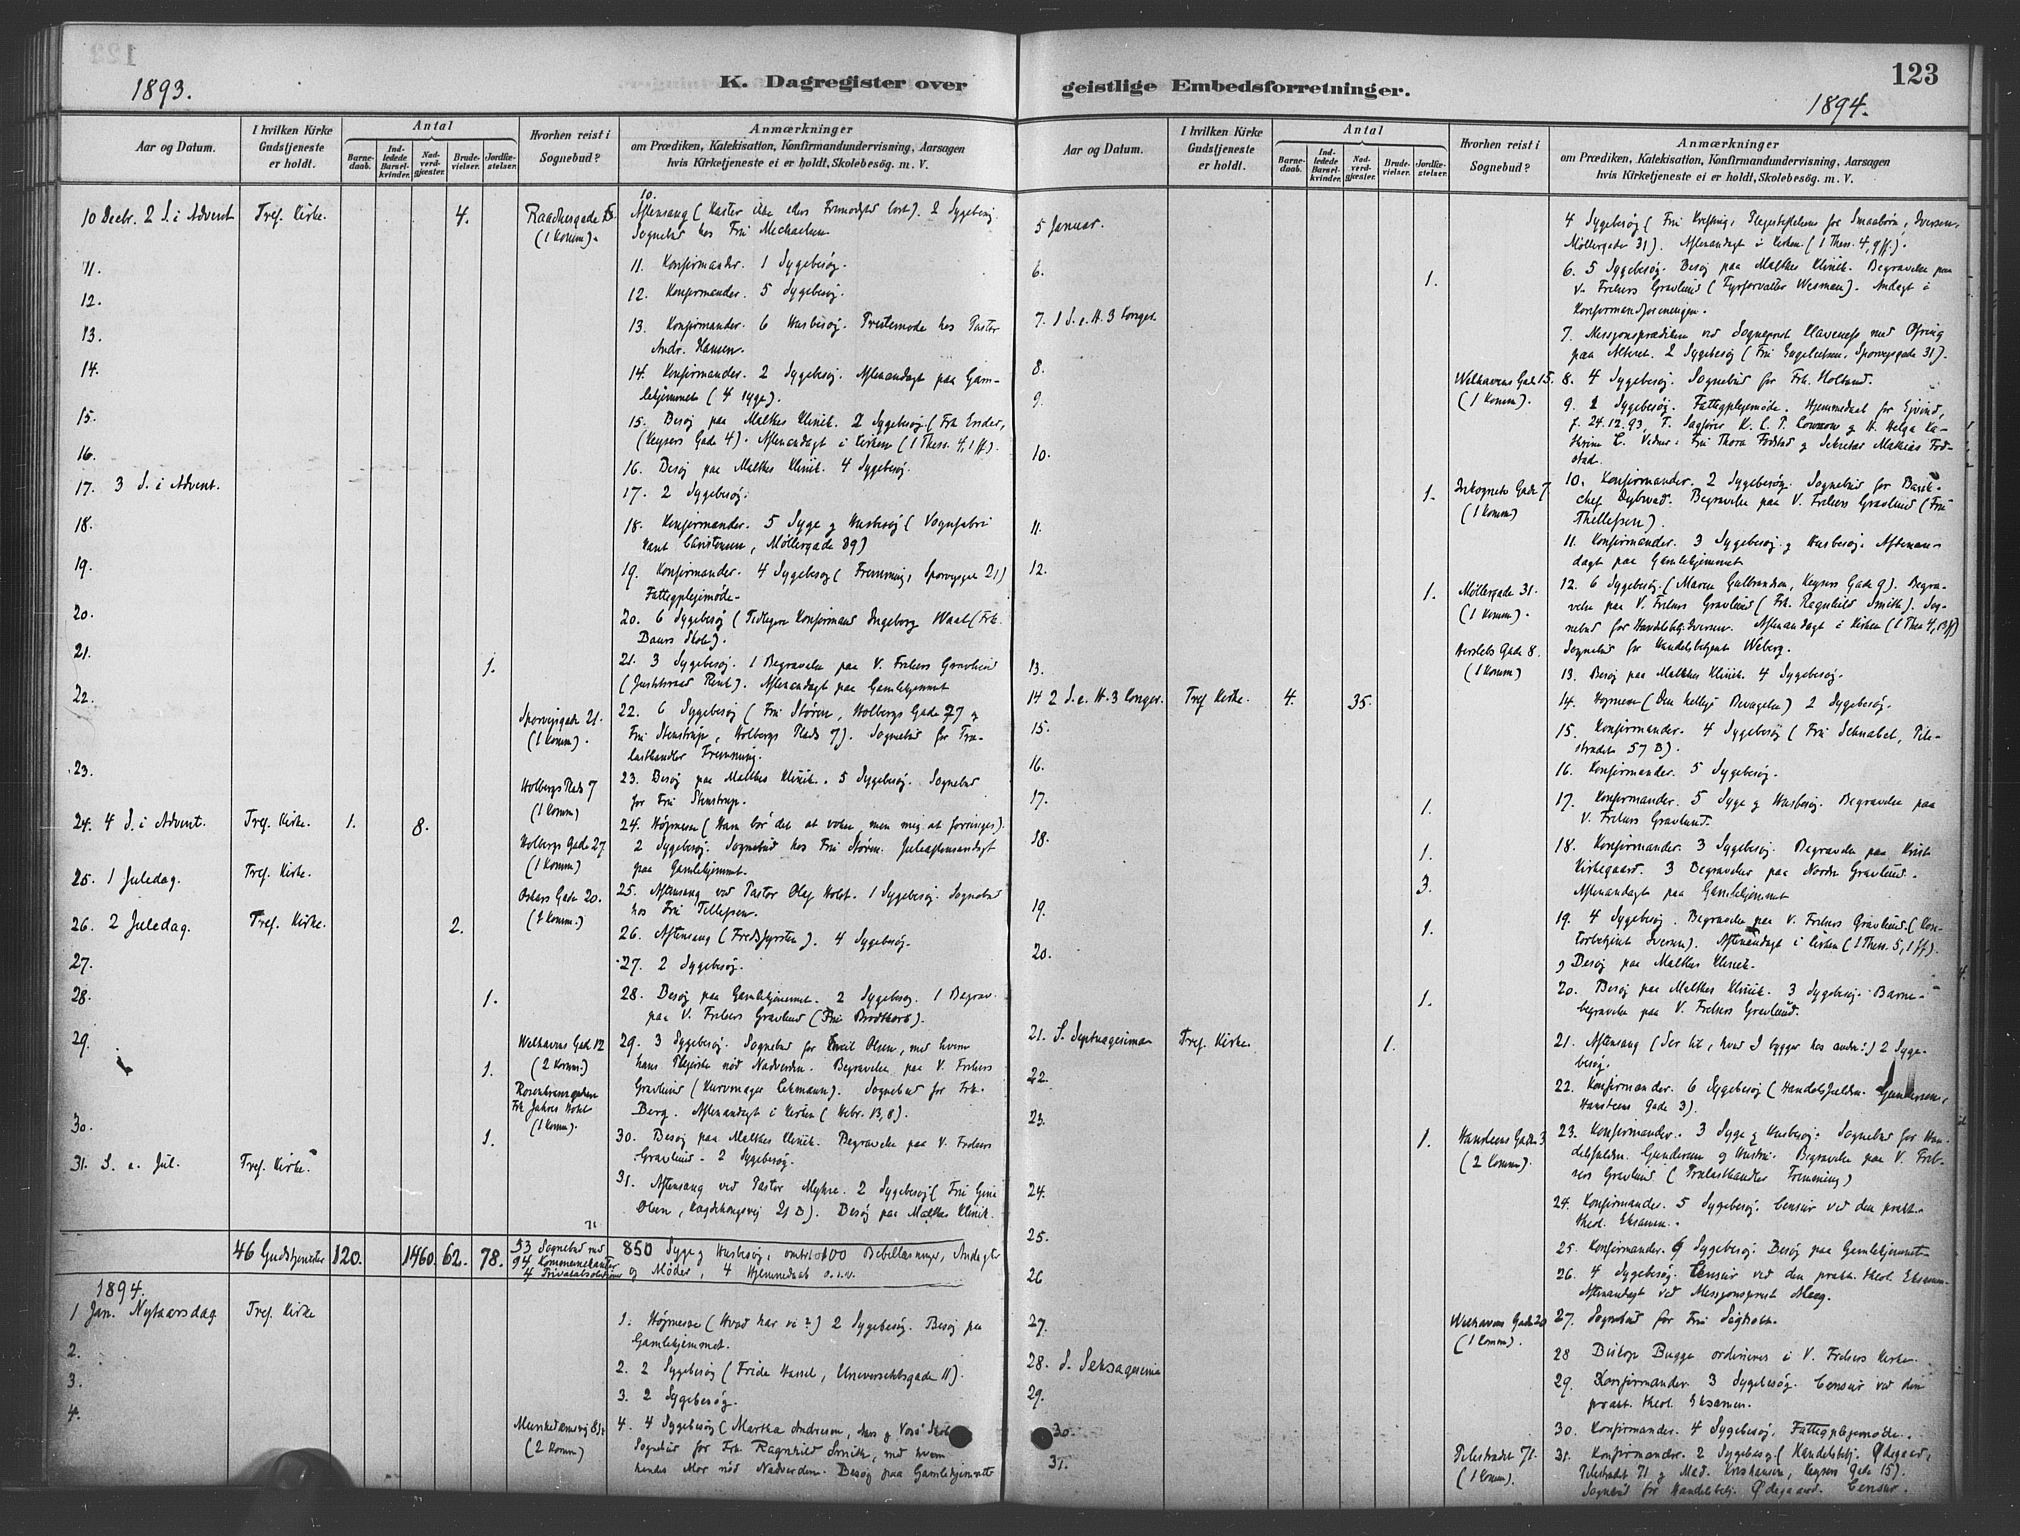 123
1893.
K. Dagregister over
Aar og Datum.
I hvilken Kirke Gudstjeneste er holdt.
Antal
Barnedaab.
Indledede Barselkvinder.
Nadverdgjæster.
Brudevielser.
Jordfæstelser.
Hvorhen reist i Sognebud?
Anmærkninger
om Prædiken, Katekisation, Konfirmandundervisning, Aarsagen
hvis Kirketjeneste ei er holdt, Skolebesög. m. V.
10 Decbr. 2 S. i Advent Tref. Kirke. 4.
(1 Komm).
10.
Aftensang (Kaster ikke eders Frimodighed bort). 2 Sygebesøg
Sognebud hos Fru Michaelsen
11. 11. Konfirmander. 1 Sygebesøg.
12. 12. Konfirmander. 5 Sygebesøg.
13. 13. Konfirmander. 6 Husbesøg. Prestemøde hos Pastor
Andr. Hansen.
14. 14. Konfirmander. 2 Sygebesøg. Aftenandagt paa Gam-
lehjemmet (4 syge).
15. 15. Besøg paa Malthes Klinik. 2 Sygebesøg (Frk
(Keysers Gade 4). Aftenandagt i Kirken (1 Thess. 4, 1 ff).
16. 16. Besøg paa Malthes Klinik. 4 Sygebesøg.
17. 3 S. i Advent. 17. 2 Sygebesøg.
18. 18. Konfirmander. 5 Syge og Husbesøg (Vognfabri
kant Christensen, Møllergade 89)
19. 19. Konfirmander. 4 Sygebesøg (Sporvejsgade 21)
Fattigplejemøde.
20. 20. 6 Sygebesøg (Tidligere Konfirmand Ingeborg Waal (Frk.
Bauers Skole).
21. 1. 21. 3 Sygebesøg. 1 Begravelse paa V. Frelsers Gravlund
(Justitsraad). Aftenandagt paa Gamlehjemmet
22. Sporvejsgade 21.
(1 Komm).
22. 6 Sygebesøg (Fru Støren, Holbergs Gade 27 og
Fru Stenstrup, Holbergs Plads 7). Sognebud for Træ-
lasthandler
23. Holbergs Plads 7
(1 Komm)
23. Besøg paa Malthes Klinik. 5 Sygebesøg. Sognebud
for Fru Stenstrup.
24. 4 S. i Advent. Tref. Kirke. 1. 8.
Holbergs Gade 27
(1 Komm)
24. Højmesse (Ham bør det at vokse, men mig at forringes).
2 Sygebesøg. Sognebud hos Fru Støren. Juleaftensandagt
paa Gamlehjemmet.
25. 1 Juledag. Tref. Kirke.
Oscars Gade 20.
25. Aftensang ved Pastor Olaf Holst. 1 Sygebesøg. Sognebud
hos Fru Tellefsen.
26. 2 Juledag. Tref. Kirke. 2. 26. Aftensang (Fredsfyrsten). 4 Sygebesøg.
27. 27. 2 Sygebesøg.
28. 1. 28. Besøg paa Gamlehjemmet. 2 Sygebesøg. 1 Begrav.
paa V. Frelsers Gravlund (Fru Brodtkorb).
29. 1.
Welhavens Gade 12
(2 Komm.)
(1 Komm).
29. 3 Sygebesøg. Sognebud for Emil Olsen, med hvem
hans nød Nadverden. Begravelse paa V. Frelsers
Gravlund (Kurvmager Lehmann). Sognebud for Frk.
Berg. Aftenandagt i Kirken (Hebr. 13, 8).
30. 1. 30. Besøg paa Malthes Klinik. Begravelse paa V. Frelsers
Gravlund. 2 Sygebesøg.
31. S. e. Jul. Tref. Kirke. 31. Aftensang ved Pastor Myhre. 2 Sygebesøg (Fru Gina
Olsen, 21 B). Besøg paa Malthes Klinik.
46 Gudstjenester 120. 1460. 62. 78.
53 Sognebud med
94 Kommunikanter
4 Privatabsolutioner
850 Syge og Husbesøg, omtr. 100 Bibellæsninger, Andagter
og Møder, 4 Hjemmedaab o.s.v.
1894.
1 Jan. Nytaarsdag Tref. Kirke 1. Højmesse (Hvad har vi?) 2 Sygebesøg. Besøg paa
Gamlehjemmet.
2. 2. 2 Sygebesøg (Frida Hassel, Universitetsgade 11).
3. 3. 2 Sygebesøg.
4.
(2 Komm)
4. 4 Sygebesøg (Martha Andresen,
Sognebud for Frk. Ragnhild Smith, med hvem
hendes Mor nød Nadverden. Besøg paa Gamlehjemmet
123
1894.
geistlige Embedsforretninger.
Aar og Datum.
I hvilken Kirke Gudstjeneste er holdt.
Antal
Barnedaab.
Indledede Barselkvinder.
Nadverdgjæster.
Brudevielser.
Jordfæstelser.
Hvorhen reist i Sognebud?
Anmærkninger
om Prædiken, Katekisation, Konfirmandundervisning, Aarsagen
hvis Kirketjeneste ei er holdt, Skolebesög. m. V.
5 Januar. 4 Sygebesøg (Fru Plejestiftelsen for Smaabørn, Iversen,
Møllergade 31). Aftenandagt i Kirken (1 Thess. 4, 9 ff).
6. 1. 6. 5 Sygebesøg. Besøg paa Malthes Klinik. Begravelse paa
V. Frelsers Gravlund (Fyrforvalter Wesman). Andagt i
Konfirmandforeningen.
7. 1 S. e. H. 3 Konger. 7. Missionsprædiken ved Sogneprest Klaveness med Ofring
paa Alteret. 2 Sygebesøg (Fru Engebretsen, Sporvejsgade 31).
8. Welhavens Gade 15.
(1 Komm).
8. 4 Sygebesøg. Sognebud for Frk. Holland.
9. 9. 2 Sygebesøg. Fattigplejemøde. Hjemmedaab for Ejvind,
f. 24.12.93, T. Sagfører K. C. T. og H. Helga Ka-
thrine Vidner: Fru Thora Fodstad og Sekretær Mathias Fod-
stad.
10. 1. Inkognito Gade 7.
(1 Komm)
10. Konfirmander. 2 Sygebesøg. Sognebud for Bank-
chef Dybwad. Begravelse paa V. Frelsers Gravlund (Fru
Thellefsen).
11. 11. Konfirmander. 3 Sygebesøg og Husbesøg. Aftenan-
dagt paa Gamlehjemmet
12. 1. Møllergade 31.
(1 Komm).
12. 6 Sygebesøg (Maren Gulbrandsen, Keysers Gade 9). Begra-
velse paa V. Frelsers Gravlund (Frk. Ragnhild Smith). Sog-
nebud for Handelsbetj. Iversen. Aftenandagt i Kirken (1 Thess 4, 13 ff)
Herslebs Gade 8.
(1 Komm)
Sognebud for Handelsbetjent Weberg.
13. 13. Besøg paa Malthes Klinik. 4 Sygebesøg.
14 2 S. e. H. 3 Konger. Tref. Kirke. 4. 35. 14. Højmesse (Den hellige Bevægelse) 2 Sygebesøg.
15. 15. Konfirmander. 4 Sygebesøg (Fru Schnabel, Pile-
stradet 57 B).
16. 16. Konfirmander. 5 Sygebesøg.
17. 1. 17. Konfirmander. 5 Syge og Husbesøg. Begravelse paa
V. Frelsers Gravlund.
18. 1. 3. 18. Konfirmander. 3 Sygebesøg. Begravelse paa Krist
Kirkegaard. 3 Begravelser paa Nordre Gravlund.
Aftenandagt paa Gamlehjemmet
19. 1. 19. 4 Sygebesøg. Begravelse paa V. Frelsers Gravlund (Kon-
torbetjent Iversen). Aftenandagt i Kirken (1 Thess. 5, 1 ff).
Besøg paa Malthes Klinik.
20. 1. 20. Besøg paa Malthes Klinik. 3 Sygebesøg. Barne-
begravelse paa V. Frelsers Gravlund.
21. S. Septuagesima Tref. Kirke. 1. 21. Aftensang (Ser til, hvad I bygger hos andre!) 2 Syge-
besøg.
22. 22. Konfirmander. 6 Sygebesøg (Handelsfuldm. Gundersen,
Hansteens Gade 3).
23. 1. Hansteens Gade 3
(2 Komm).
23. Konfirmander. 3 Syge og Husbesøg. Sognebud for Han-
delsfuldm. Gundersen og Hustru. Begravelse paa V. Frel-
sers Gravlund (Trælasthandler
24. 24. Konfirmander. 5 Sygebesøg. Censur ved den prakt.
theol. Eksamen.
25. 25. Konfirmander. 9 Sygebesøg. Besøg paa Gamlehjemmet
26 26. 4 Sygebesøg. Censur ved den prakt. theol. Eksamen.
Aftenandagt ved Missionsprest
27. Welhavens Gade 20
(1 Komm).
27. Sognebud for Fru
28. S. Seksagesima 28 Biskop Bugge ordinerer i V. Frelsers Kirke.
29. 29. Konfirmander. 3 Sygebesøg. Censur ved den
prakt. theol. Eksamen.
30. 30. Konfirmander. 4 Sygebesøg. Fattigplejemøde.
31. Pilestradet 71.
(1 Komm).
31. Konfirmander. 2 Sygebesøg (Handelsbetj. Ødegaard,
Pilestradet 71 og Mad. Kristiansen, Keysers Gade 15).
Sognebud for Handelsbetj. Ødegaard. Censur.